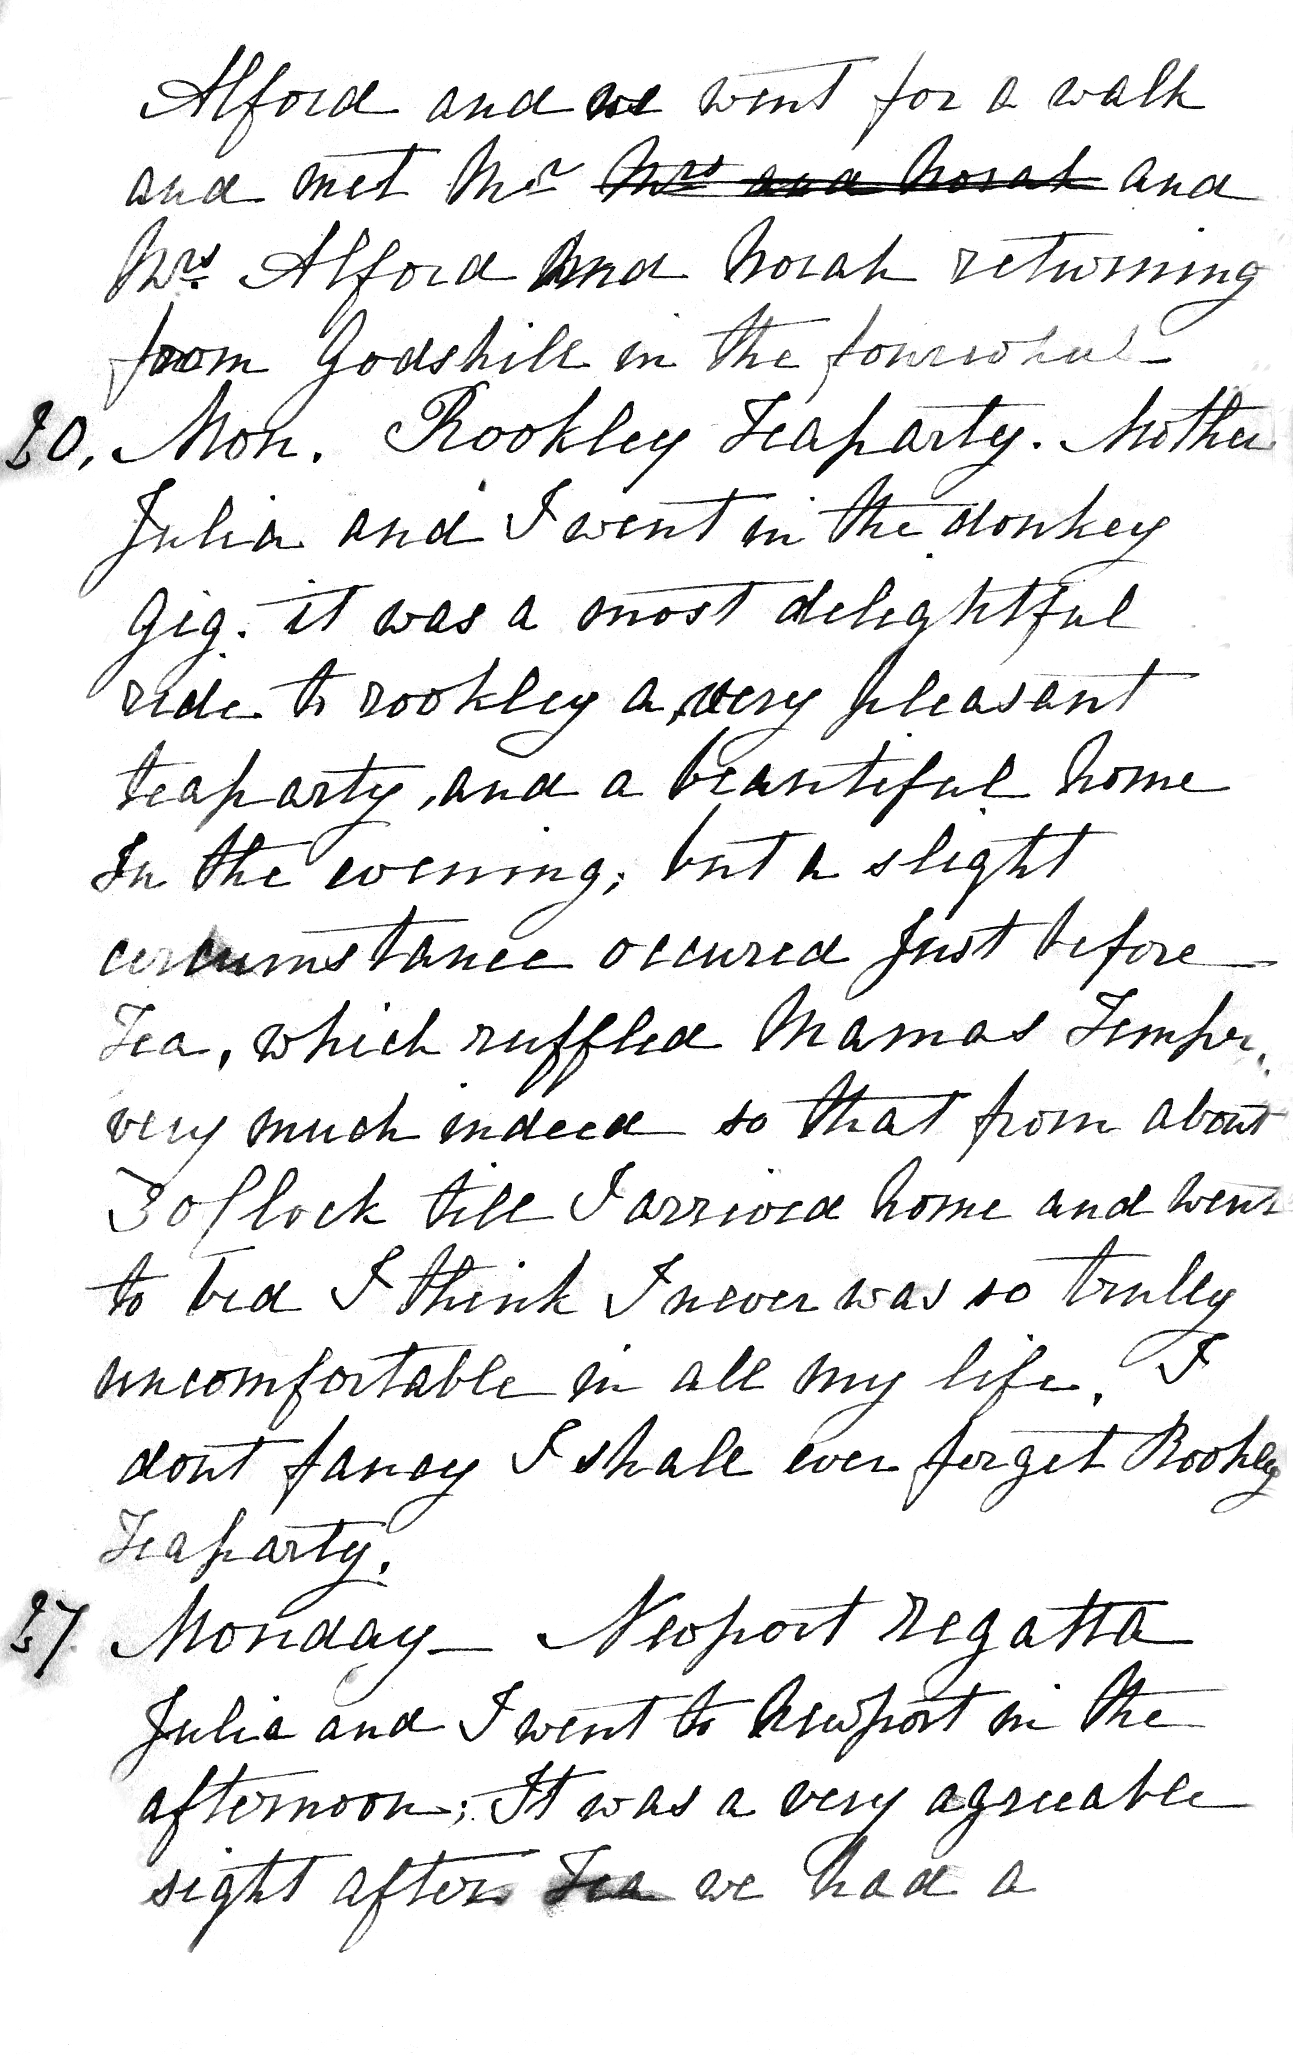 Alford and we went for a walk
and met Mr Mrs and Norah and
Mrs. Alford and Norah returning
from Godshill in the fourwheel
20, Mon. Rookley Teaparty. Mother
Julia and I went in the donkey
Gig. it was a most delightful
ride to rookley a very pleasant
teaparty, and a beautiful home
In the evening; but a slight
circumstance occured Just before
Tea, which ruffled Mamas Temper,
very much indeed so that from about
3 oClock till I arrived home and went
to bed I think I never was so trully
uncomfortable in all my life. I
dont fancy I shall ever forget Rookley
Teaparty.
27 Monday — Newport regatta
Julia and I went to Newport in the
afternoon; It was a very agreeable
sight after Tea we had a